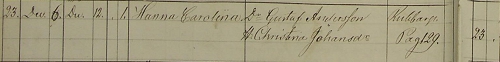 23. Dec 6. Dec. 12. 1. Hanna Carolina Dr. Gustaf Andersson
H. Christina Johansdr Pag 129. 23.